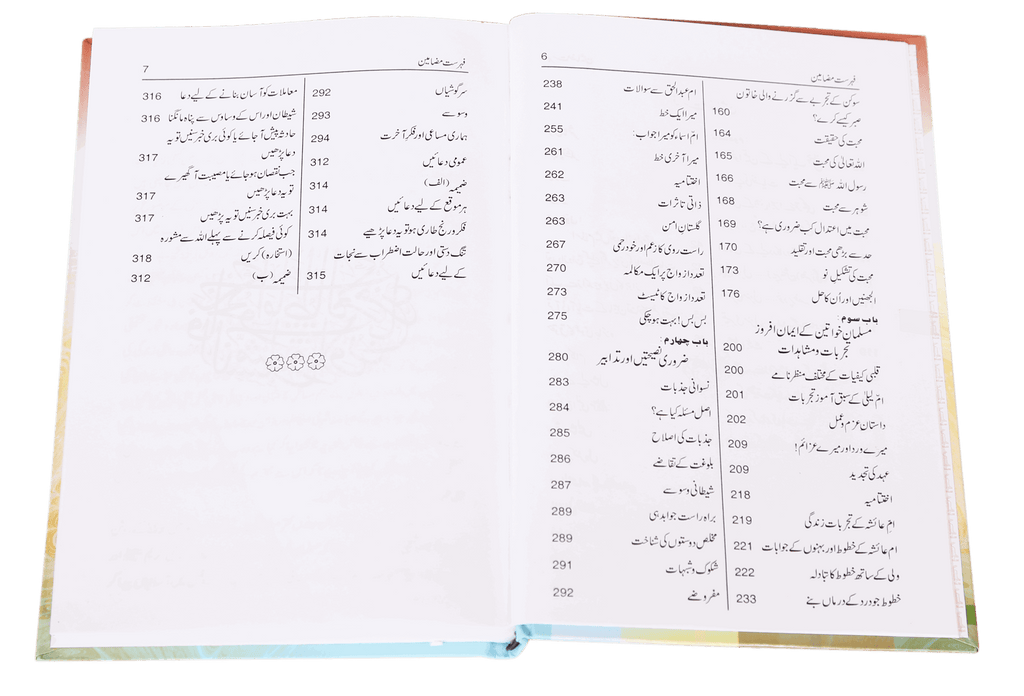 6
فہرست مضامین
سوکن کے تجربے سے گزرنے والی خاتون
صبر کیسے کرے؟ 160
محبت کی حقیقت 164
اللہ تعالیٰ کی محبت 165
رسول اللہ ﷺ سے محبت 166
شوہر سے محبت 168
محبت میں اعتدال کب ضروری ہے؟ 169
حد سے بڑھی محبت اور تقلید 170
محبت کی تشکیل نو 173
الجھنیں اور اُن کا حل 176
باب سوم:
مسلمان خواتین کے ایمان افروز
تجربات و مشاہدات 200
قلبی کیفیات کے مختلف منظر نامے 200
امّ لیلیٰ کے سبق آموز تجربات 201
داستان عزم و عمل 202
میرے درد اور میرے عزائم! 209
عہد کی تجدید 209
اختتامیہ 218
امّ عائشہ کے تجربات زندگی 219
ام عائشہ کے خطوط اور بہنوں کے جوابات 221
ولی کے ساتھ خطوط کا تبادلہ 222
خطوط جو درد کے درماں بنے 233
ام عبدالحق سے سوالات 238
میرا ایک خط 241
ام اسماء کو میرا جواب: 255
میرا آخری خط 261
اختتامیہ 262
ذاتی تاثرات 263
گلستان امن 263
راست روی کا زعم اور خود رحمی 267
تعدد ازواج پر ایک مکالمہ 270
تعدد ازواج کا ٹیسٹ 273
بس بس! بہت ہو چکی 275
باب چہارم:
ضروری نصیحتیں اور تدابیر 280
نسوانی جذبات 283
اصل مسئلہ کیا ہے؟ 284
جذبات کی اصلاح 285
بلوغت کے تقاضے 286
شیطانی وسوسے 287
براہ راست جوابدہی 289
مخلص دوستوں کی شناخت 289
شکوک و شبہات 291
مفروضے 292
7
فہرست مضامین
سرگوشیاں 292
وسوسے 293
ہماری مساعی اور فکر آخرت 294
عمومی دعائیں 312
ضمیمہ (الف) 314
ہر موقع کے لیے دعائیں 314
فکر و رنج طاری ہو تو یہ دعا پڑھیے 314
تنگ دستی اور حالت اضطراب سے نجات
کے لیے دعائیں 315
معاملات کو آسان بنانے کے لیے دعا 316
شیطان اور اس کے وساوس سے پناہ مانگنا 316
حادثہ پیش آ جائے یا کوئی بری خبر سنیں تو یہ
دعا پڑھیں 317
جب نقصان ہو جائے یا مصیبت آ گھیرے
تو یہ دعا پڑھیں 317
بہت بری خبر سنیں تو یہ پڑھیں 317
کوئی فیصلہ کرنے سے پہلے اللہ سے مشورہ
(استخارہ) کریں 318
ضمیمہ (ب) 312